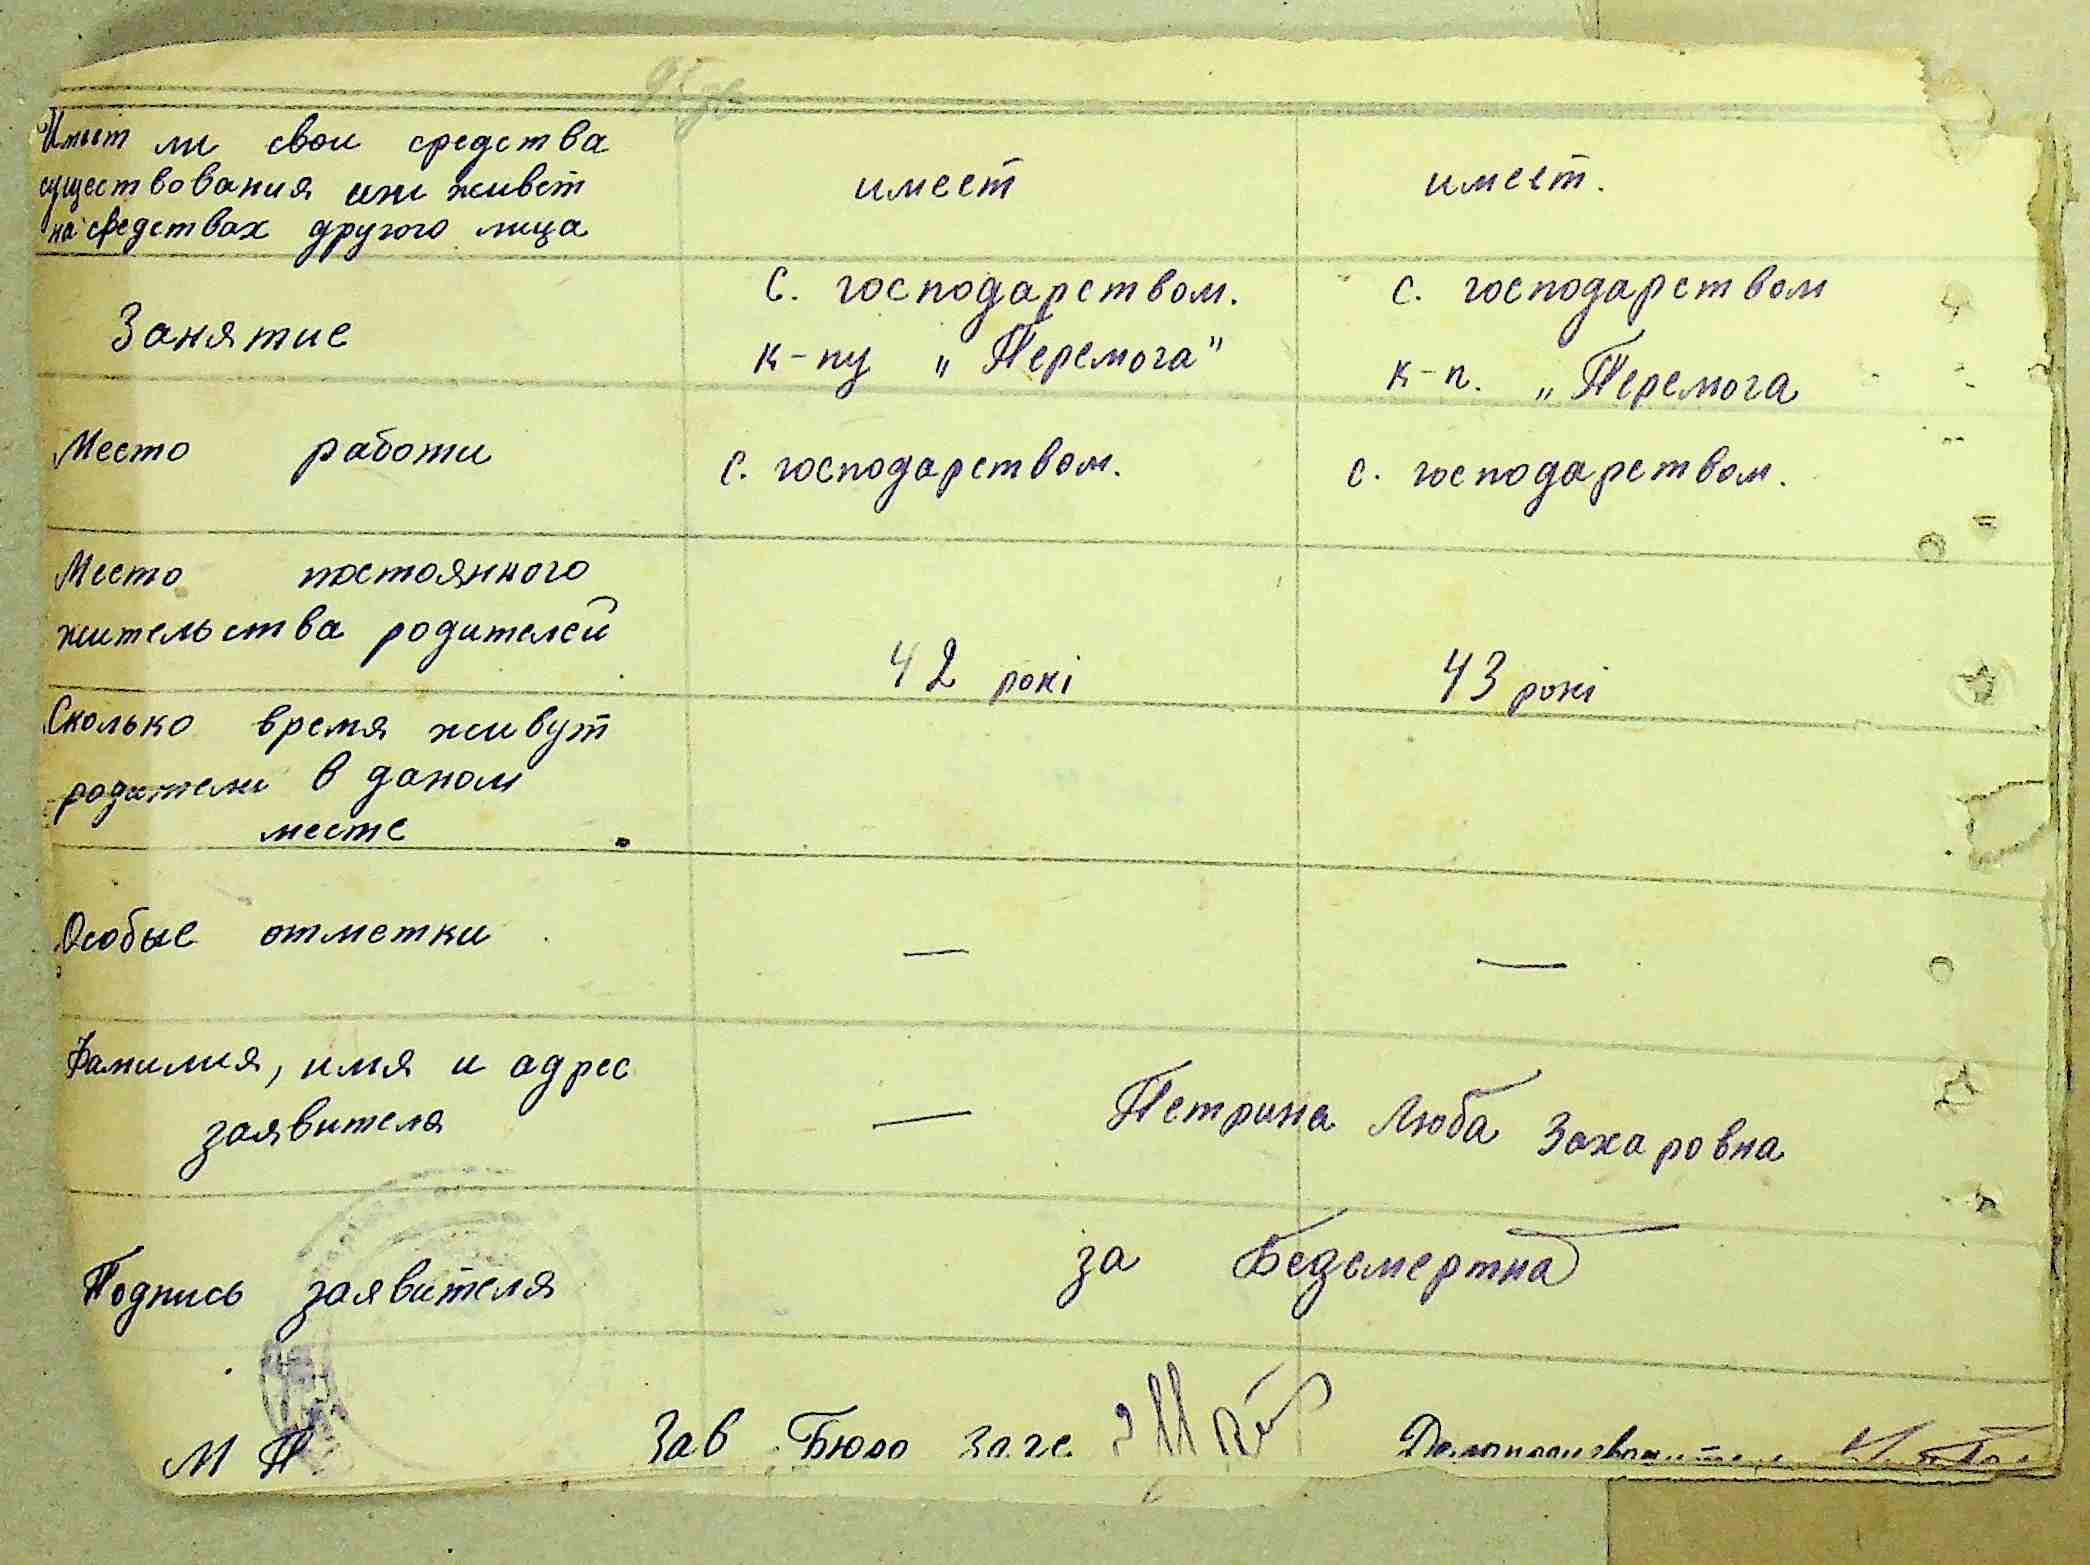 Имеет ли свои средства
существования или живет
на средствах другого лица
имеет
имеет.
Занятие
с. господарством.
к-пу „Перемога"
с. господарством
к-п. „Перемога
Место работи
с. господарством.
с. господарством.
Место постоянного
жительства родителей
42 рокі
43 рокі
Сколько время живут
родители в даном
месте
Особые отметки
—
—
Фамилия, имя и адрес
заявителя
—
Петрина Люба Захаровна
Подпись заявителя
за Бедсмертна
М П
Зав Бюро загс
Делопроизводитель